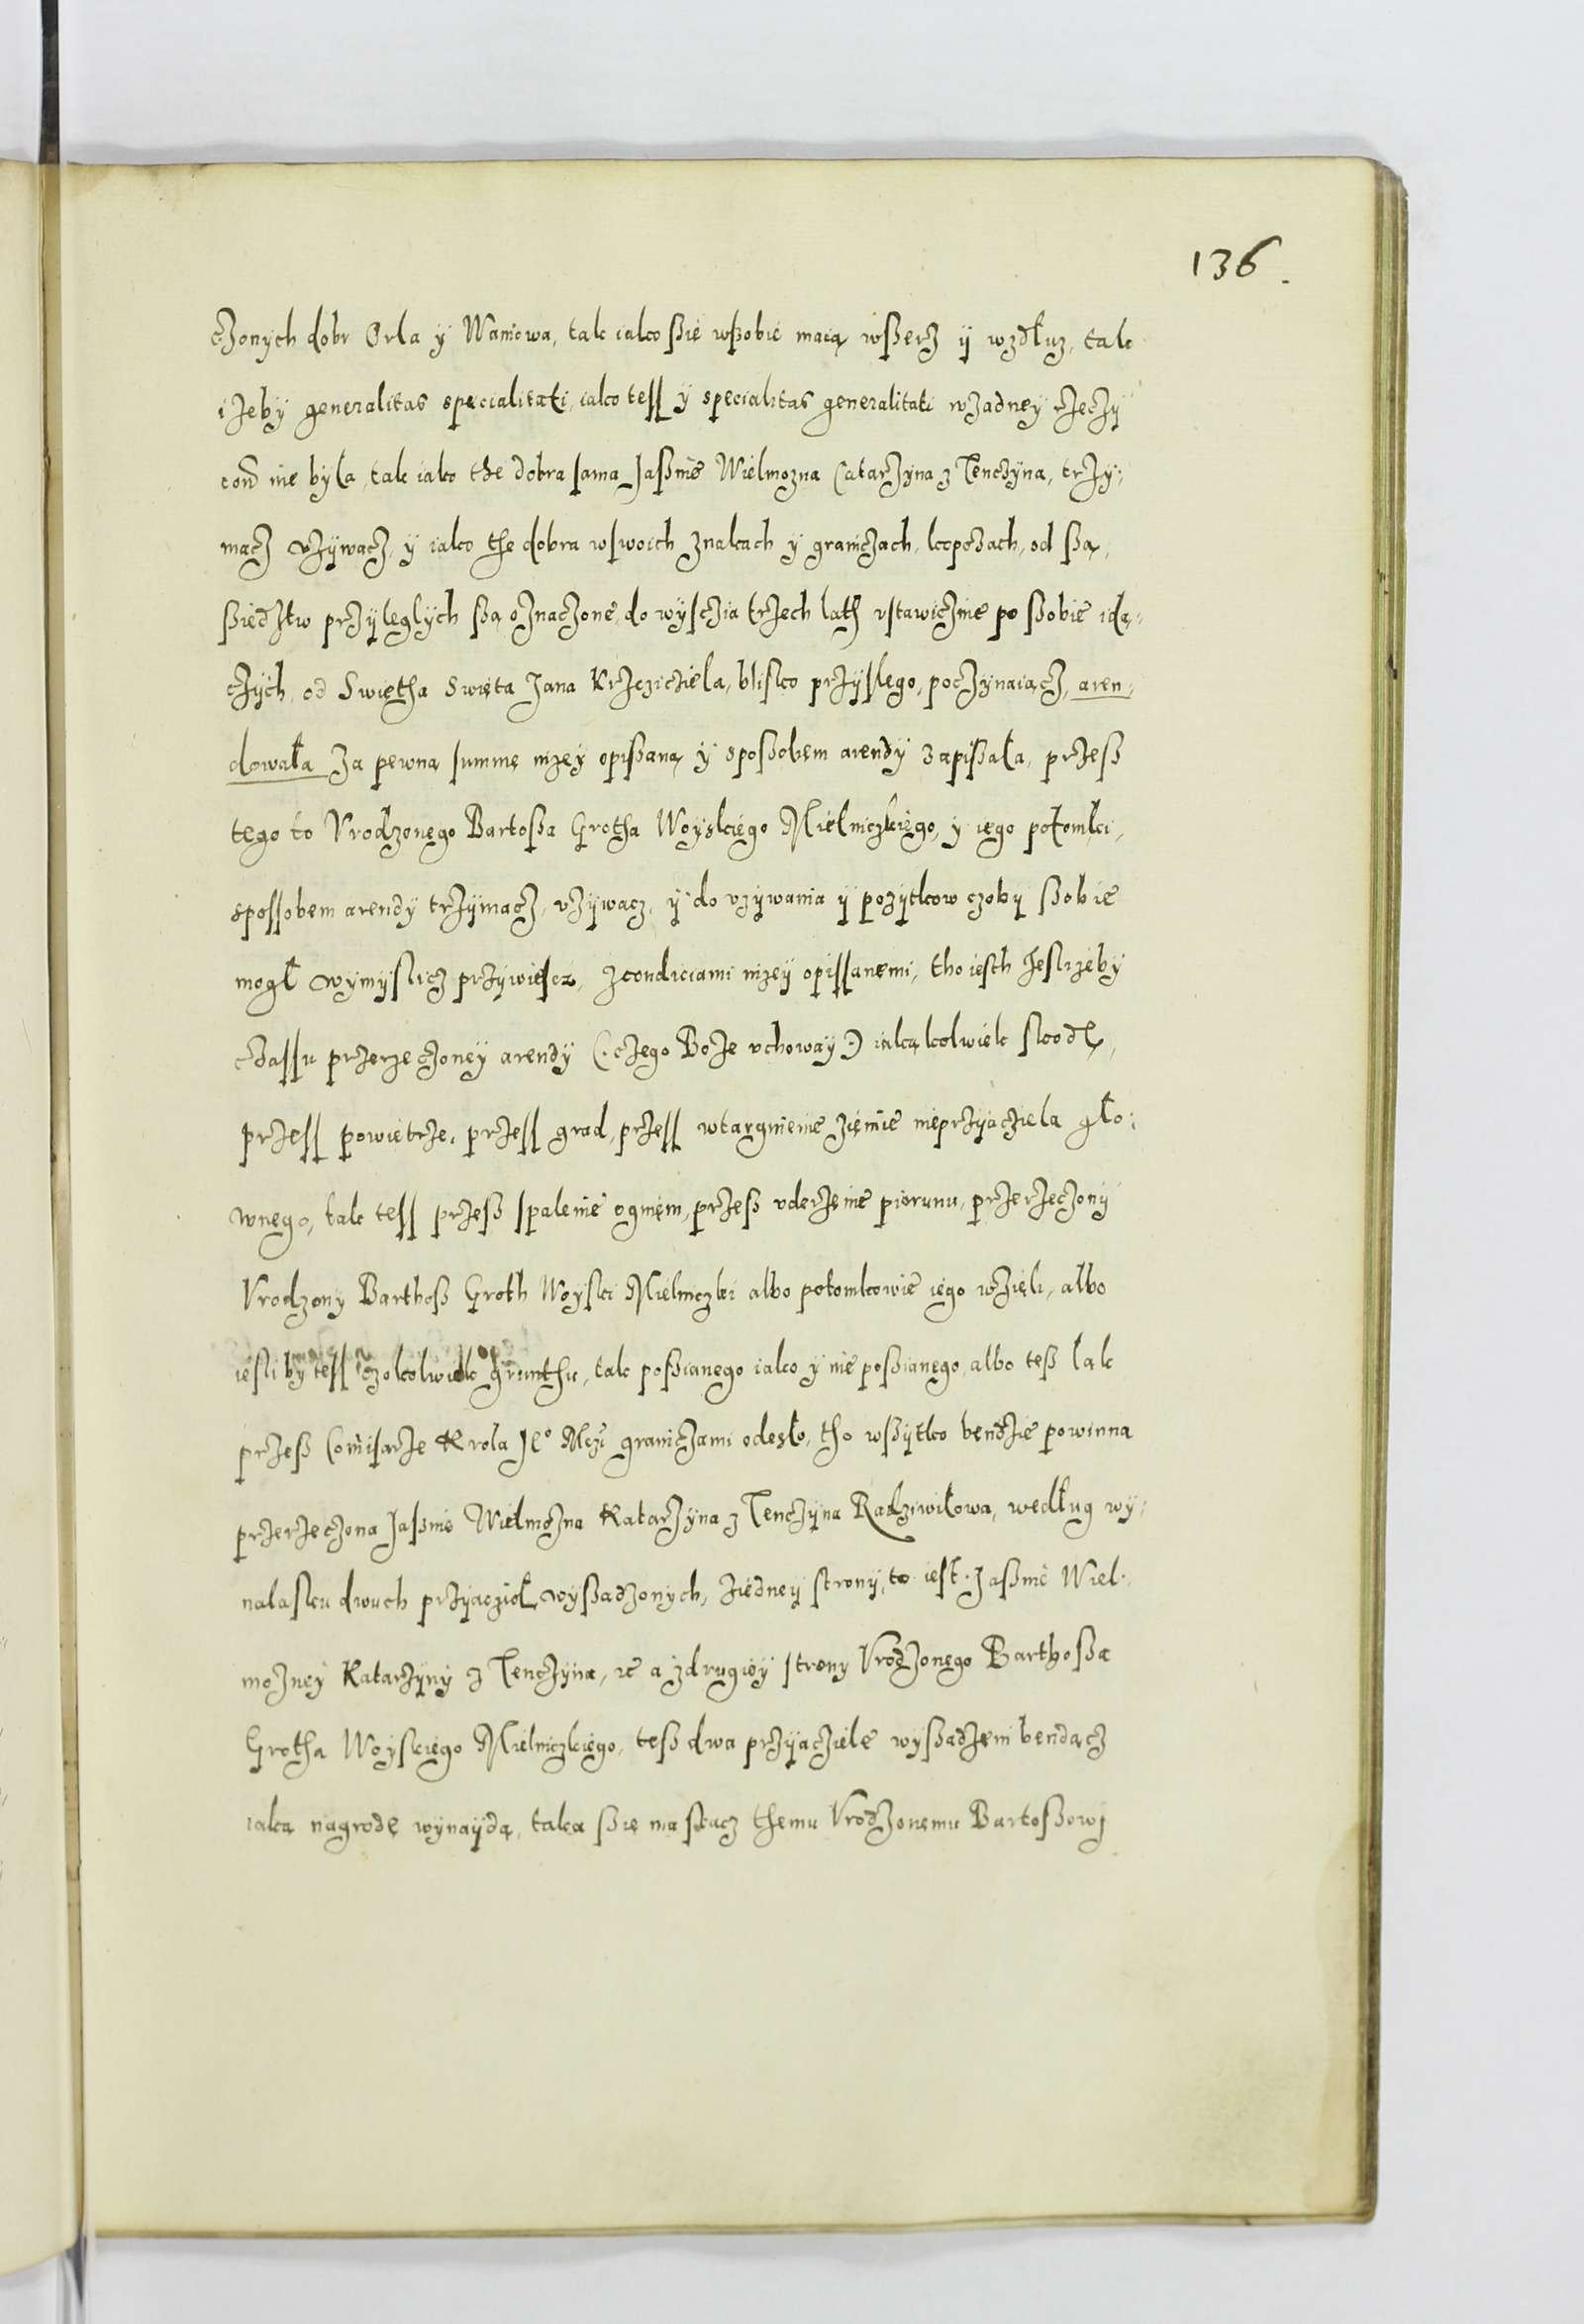 136.
czonych dobr Orla y Waniowa, tak iako ßie wßobie maią wßerz ij wzdłuz, tak
iżeby generalitas specialitati, iako tesſ y specialitas generalitati wżadney rżeczy
nie była, tak iako the dobra sama Jaßnie Wielmozna Catarżyna z Tenczyna, trży„
macz vżywacz, y iako the dobra wswoich znakach y graniczach, kopczach, od ßą„
ßiedztw prżyległych ßą oznaczone, do wyscżia trżech lath vstawicznie po ßobie idą„
czych, od Swiętha Swięta Jana Krżcziciela, blisko prżyslego, poczynaiącz, aren„
dowała za pewną summę nizey opißaną y sposſobem arendy zapißała, prżeß
tego to Vrodzonego Bartoßa Grotha Woyskiego Mielniczkiego, y iego potomki,
sposſobem arendy trżymacz, vżywacz, y do vzywania ij pozijtkow czoby ßobie
mogł wymyslicz prżywiescz, z condiciami nizeij opisſanemi, tho iesth Jeslizeby
czasſu prżerzeczoneij arendy (: czego Boże vchoway :) iakąkolwiek skodę,
prżesſ powietrże, prżesſ grad, prżesſ wtargnienie ziemie nieprżyiaciela głо„
wnego, tak tesſ prżeß spalenie ogniem, prżeß vderżenie piorunu, prżerżeczony
Vrodzony Barthoß Groth Woyski Mielniczki albo potomkowie iego wżięli, albo
iesliby tesſ czokolwiek grunthu, tak poßianego iako y nie poßianego, albo teß łąk
prżeß Comisarże Krola Je° Mczi graniczami odesło, tho wßijtko bendzie powinna
prżerżeczona Jaßnie Wielmożna Katarżyna z Tenczyna Radziwiłowa, według wy„
nalasku dwuch prżijacziół wyßadzonych, ziedneij stronij, to iest Jaßnie Wiel„
możney Katarżyny z Tenczyna, ic a zdrugiey strony Vrodzonego Barthoßa
Grotha Woyskiego Mielniczkiego, teß dwa prżijaciele wyßadzeni bendącz
iaką nagrodę wynaijdą, taka ßie ma stacz themu Vrodzonemu Bartoßowj